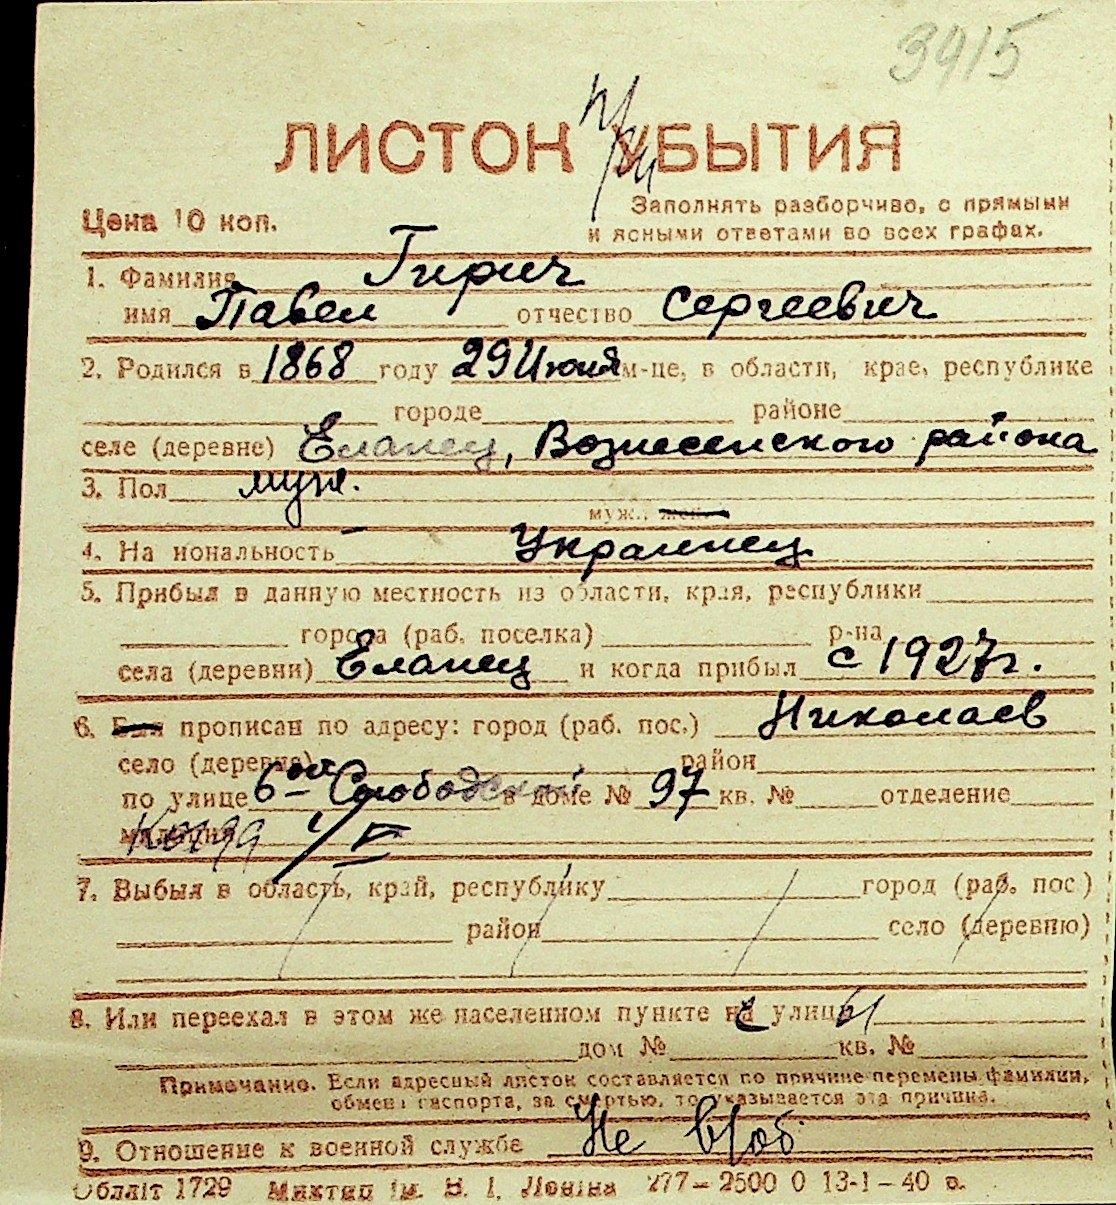 3415
ЛИСТОК УБЫТИЯ
Цена 10 коп.
Заполнять разборчиво, с прямыми
и ясными ответами во всех графах.
1. Фамилия Гирич
имя Павел отчество Сергеевич
2. Родился в 1868 году 29 Июня м-це, в области, крае, республике
городе районе
селе (деревне) Еланец, Вознесенского района
3. Пол муж.
муж., жен.
4. Национальность Украинец
5. Прибыл в данную местность из области, края, республики
города (раб. поселка) р-на
села (деревни) Еланец и когда прибыл с 1927 г.
6. Был прописан по адресу: город (раб. пос.) Николаев
село (деревне) район
по улице 6ой Слободской в доме № 97 кв. № отделение
милиции
7. Выбыл в область, край, республику город (раб. пос.)
район село (деревню)
8. Или переехал в этом же населенном пункте на улицу
дом № кв. №
Примечание. Если адресный листок составляется по причине перемены фамилии,
обмена паспорта, за смертью, то указывается эта причина.
9. Отношение к военной службе Не в/об
Облліт 1729 Миктип ім. В. І. Леніна 277—2500 0 13-1—40 р.